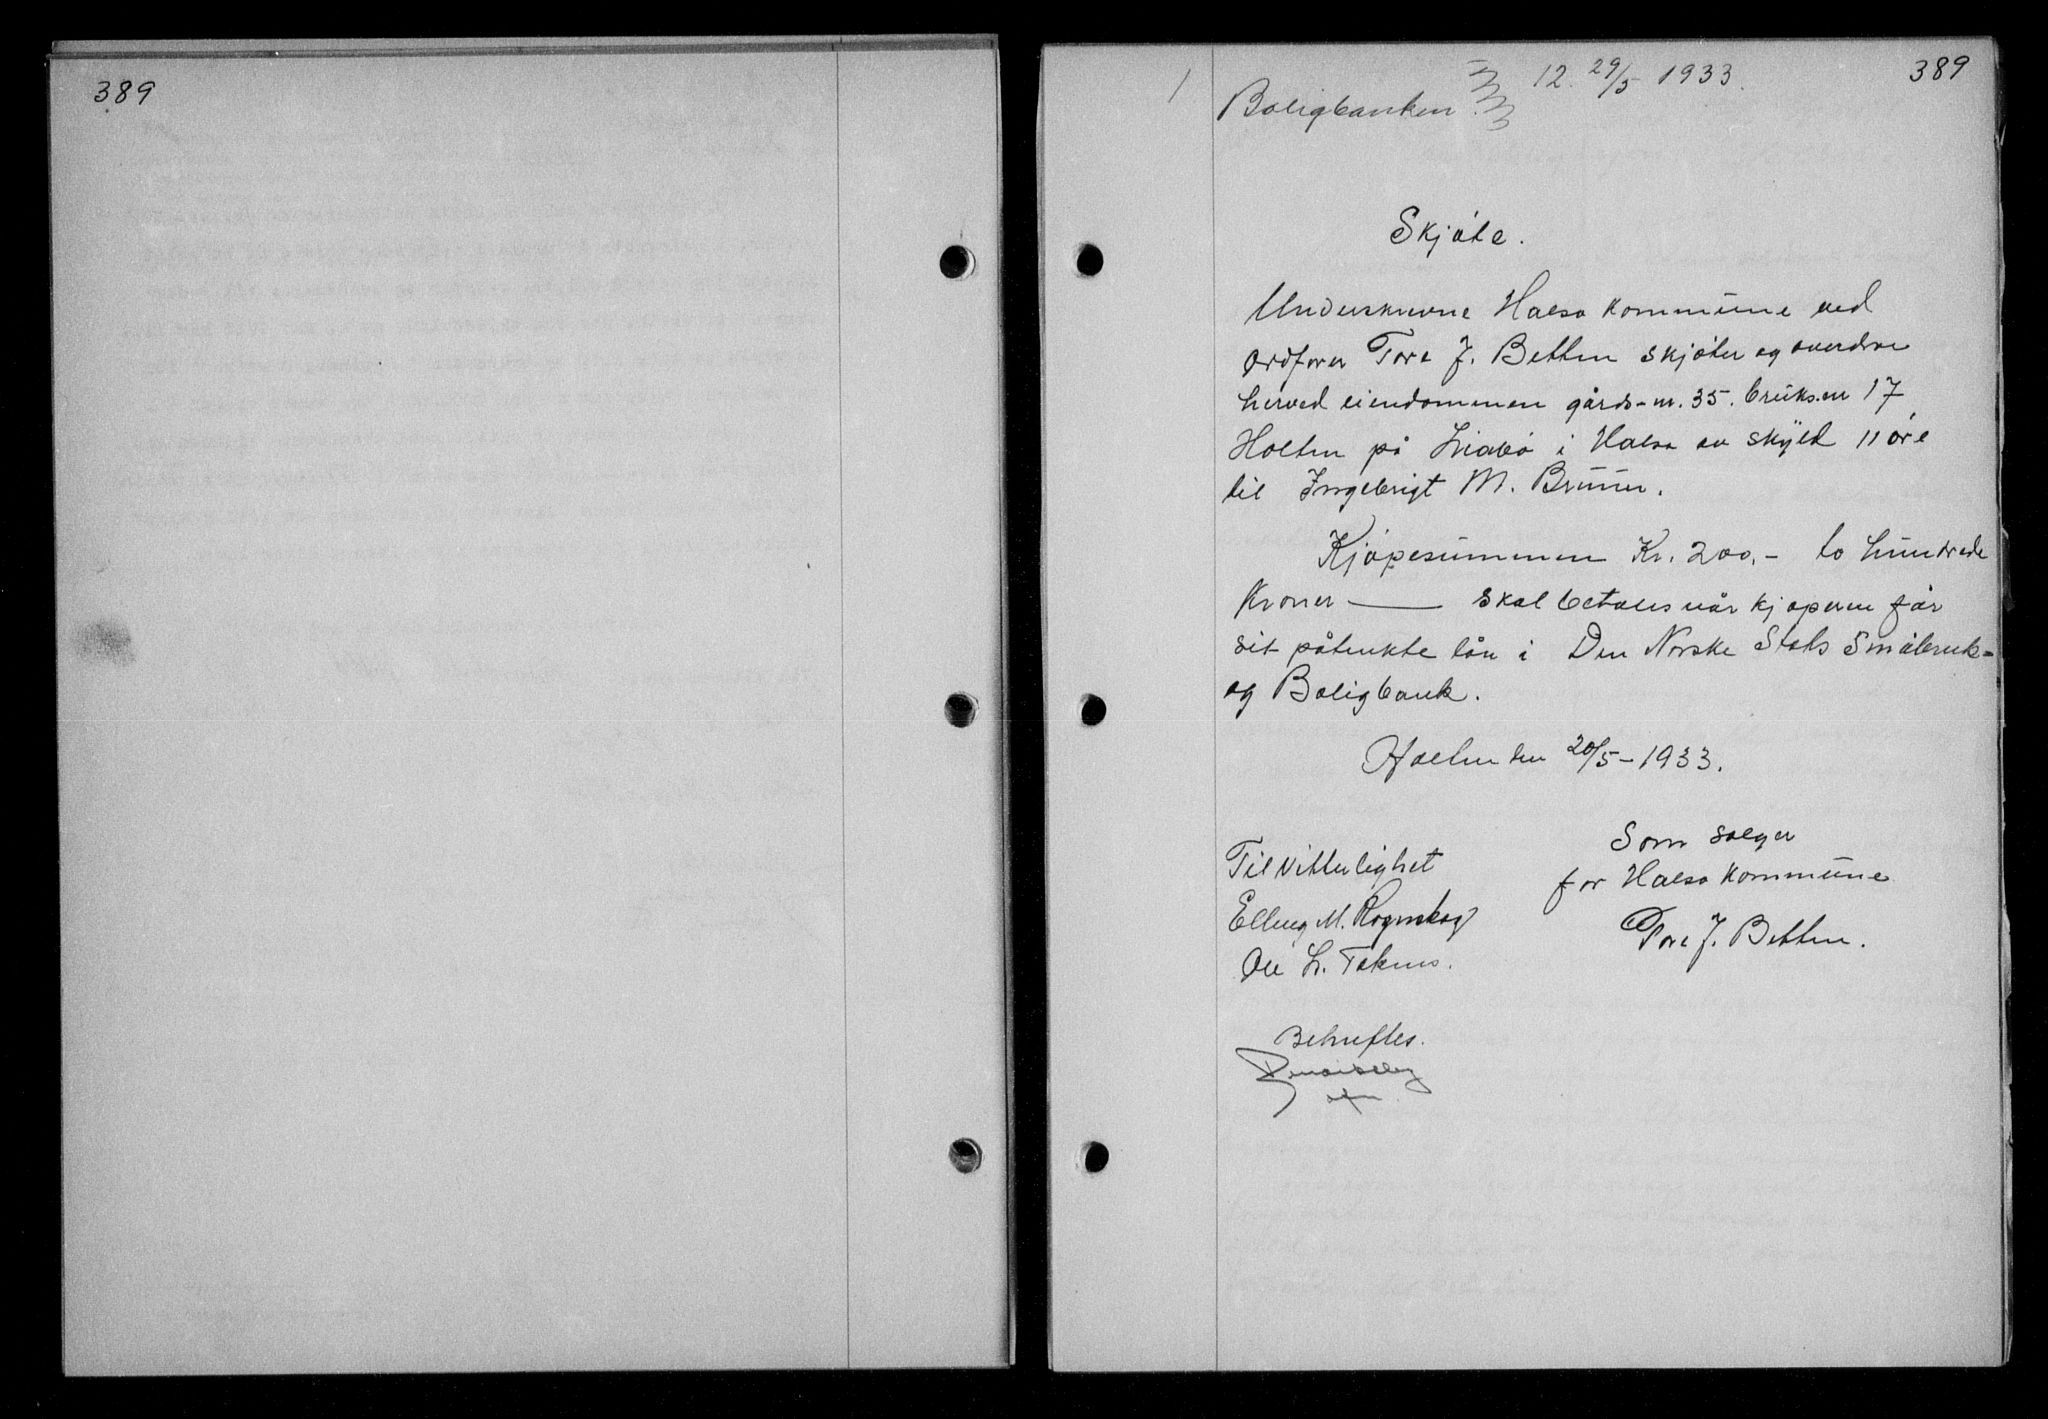 389
389
1
12. 29/5 1933.
Boligbanken
Skjøte.
Underskrevne Halsa kommune ved
Ordfører Tore J. Betten skjøter og overdrar
herved eiendommen gårds-nr. 35. bruks.nr 17
Holten på Liabø i Halsa av skyld 11 øre
til Ingebrigt M. Bruun.
Kjøpesummen Kr. 200,- to hundrede
kroner — skal betales når kjøperen får
sit påtenkte lån i Den Norske Stats Småbruk-
og Boligbank.
den 20/5-1933.
Til vitterlighet
Som selger
for Halsa kommune
Elling M. Rognskog
Tore J. Betten.
Ole L.
Bekreftes.